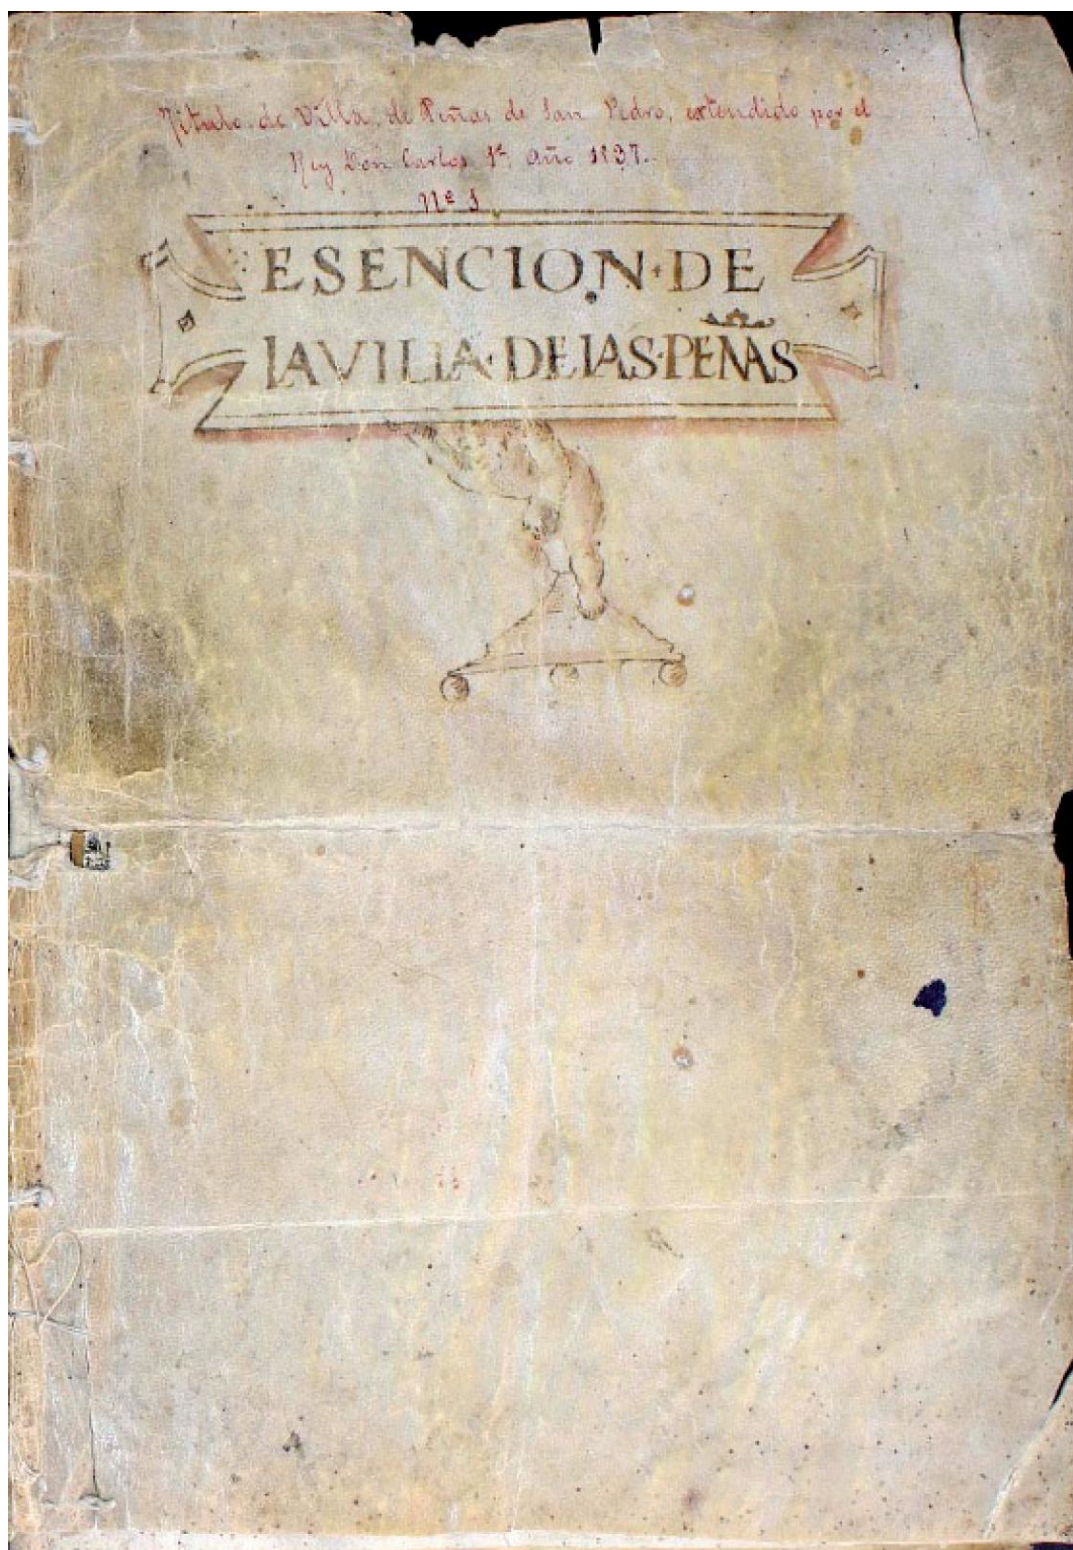 Titulo de Villa, de Peñas de San Pedro, extendido por el
Rey Don Carlos 1º, año 1537.
Nº 1
ESENCION·DE
LA VILLA·DE LAS·PEÑAS